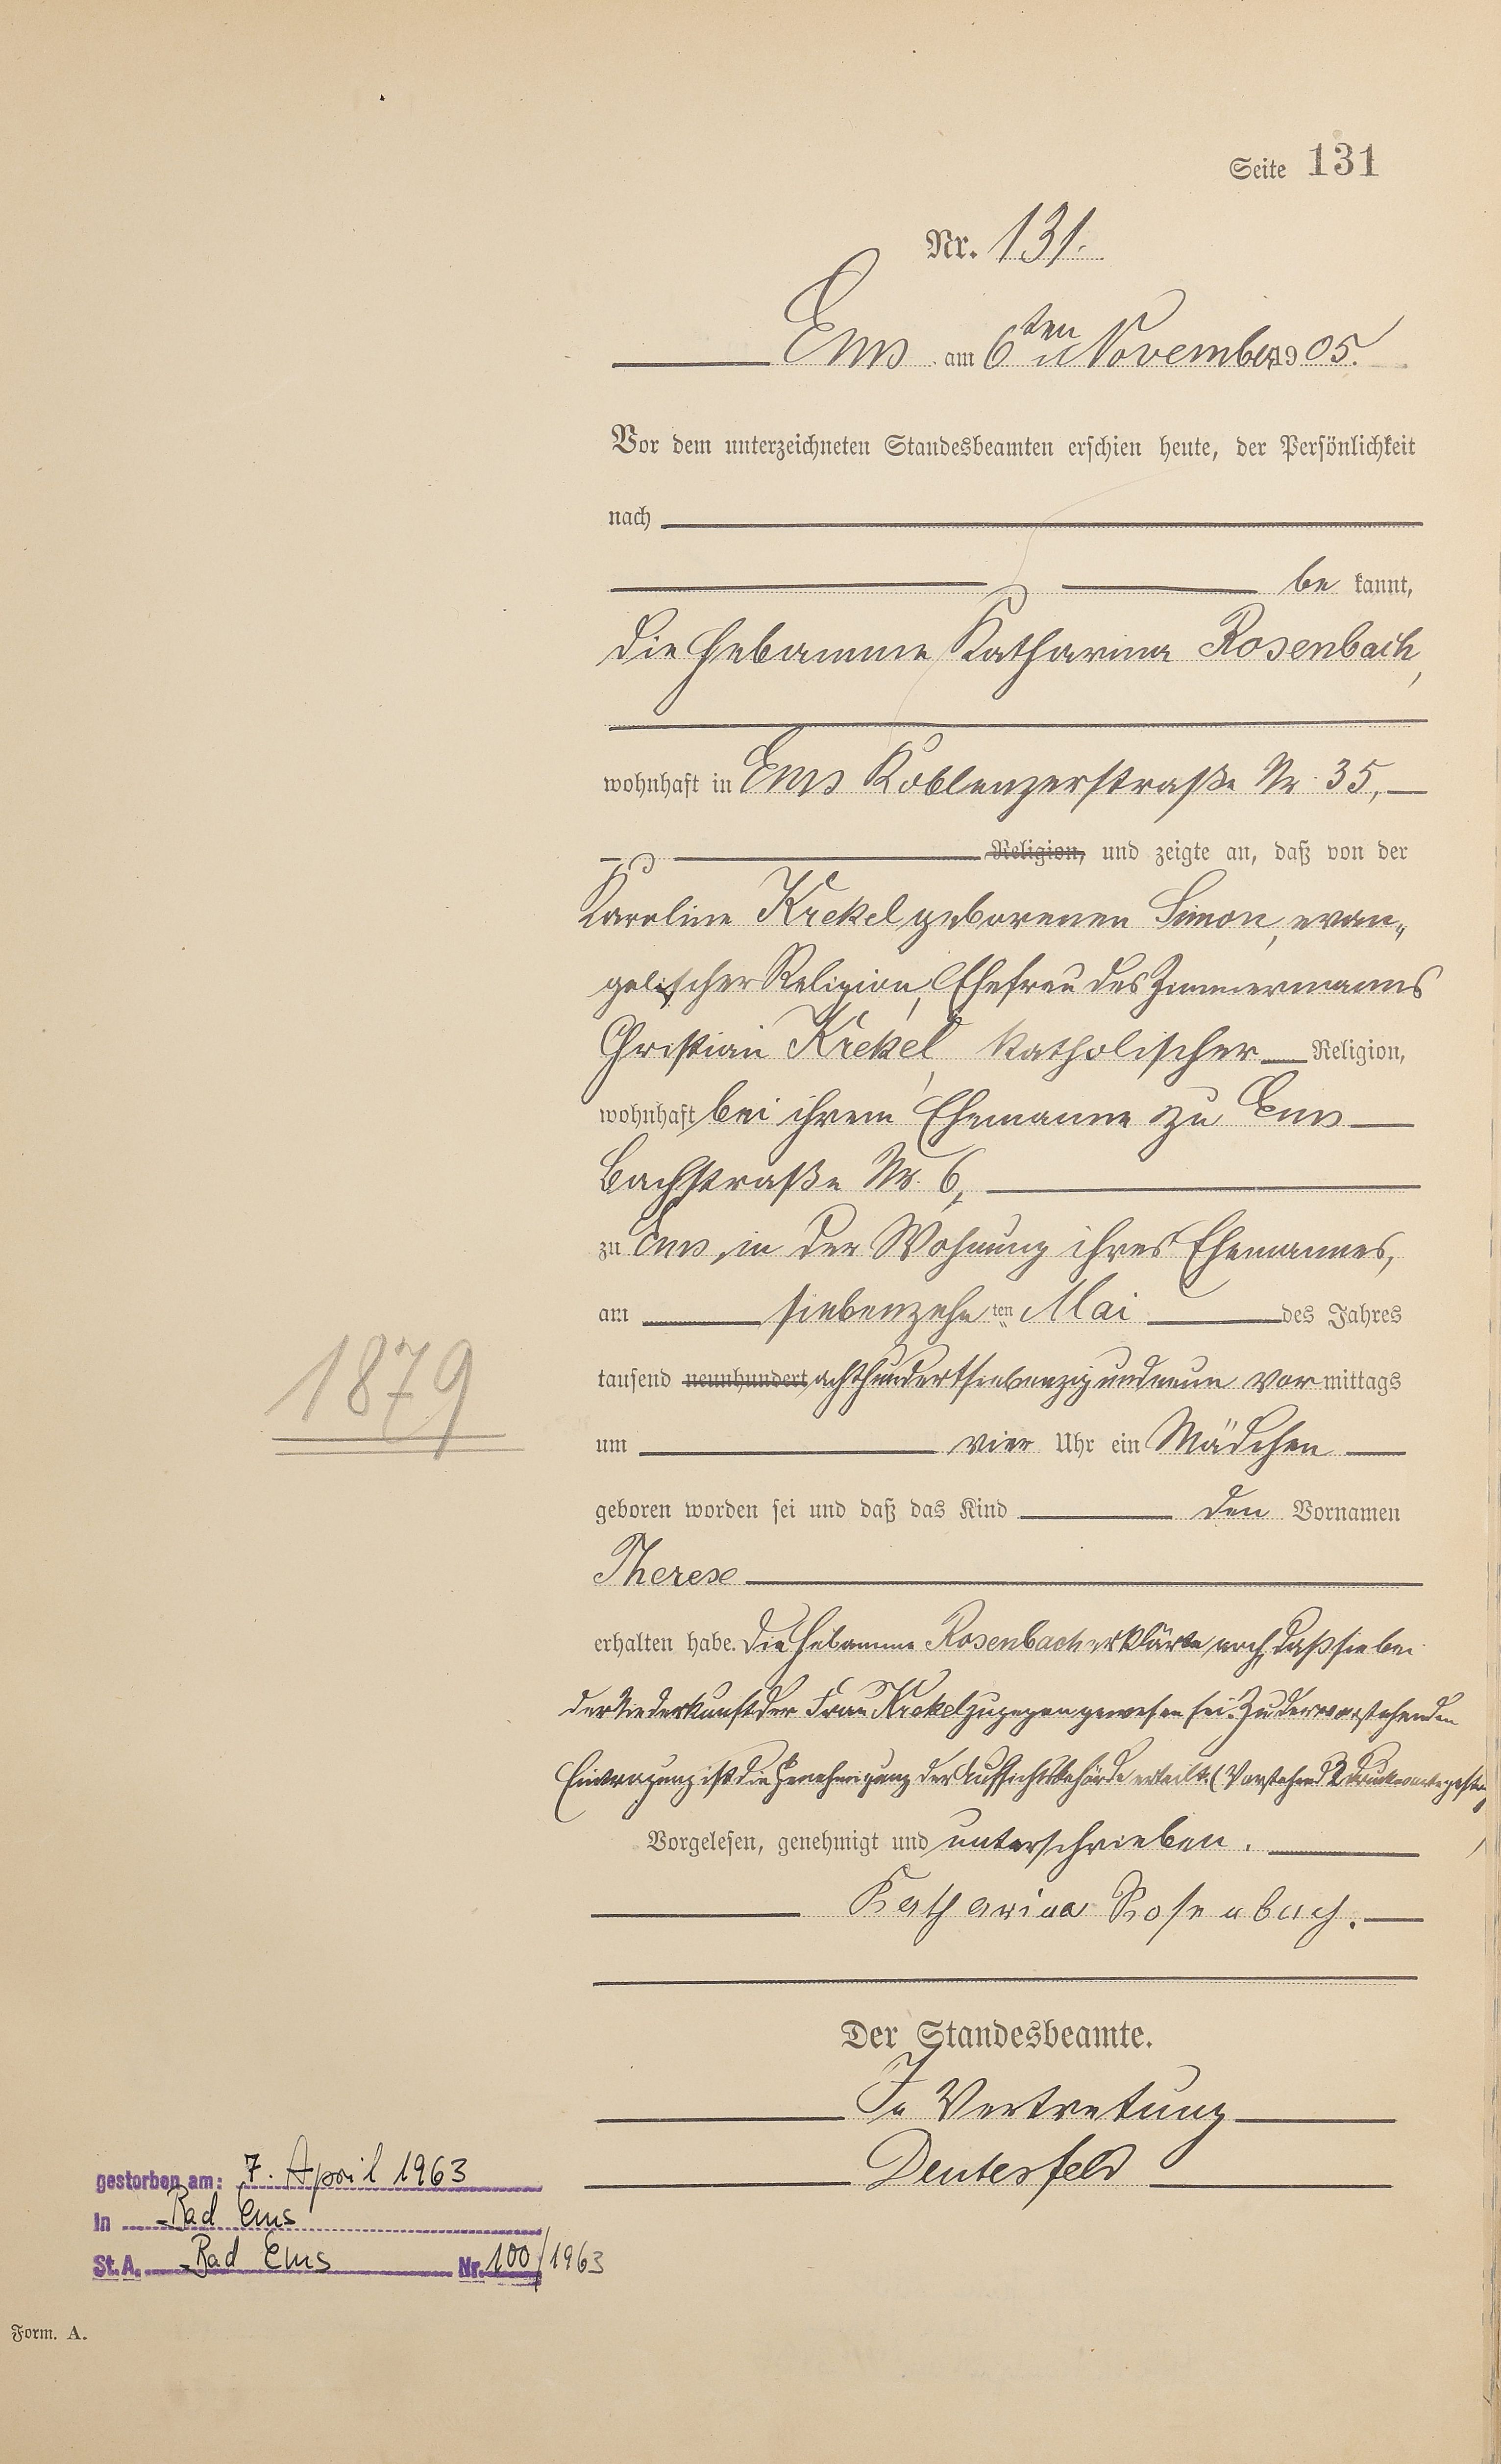 Seite 131
Nr. 131.
Ems am 6ten November 1905.
Vor dem unterzeichneten Standesbeamten erschien heute, der Persönlichkeit
nach
be kannt,
die Hebamme Katharina Rosenbach,
wohnhaft in Ems Koblenzerstraße Nr. 35,
Religion, und zeigte an, daß von der
Karoline Krekel geborenen Simon, evan-
gelischer Religion, Ehefrau des Zimmermanns
Christian Krekel, katholischer Religion,
wohnhaft bei ihrem Ehemanne zu Ems
Bachstraße Nr. 6,
zu Ems, in der Wohnung ihres Ehemannes,
am siebenzehn ten Mai des Jahres
tausend neunhundert achthundertsiebenzigundneun vor mittags
1879
um vier Uhr ein Mädchen
geboren worden sei und daß das Kind den Vornamen
Therese
erhalten habe. Die Hebamme Rosenbach erklärte noch, daß sie bei
der Niederkunft der Frau Krekel zugegen gewesen sei. Zu der vorstehenden
Eintragung ist die Genehmigung der Aufsichtsbehörde erteilt. (Vorstehend 2 Druckworte
Vorgelesen, genehmigt und unterschrieben.
Katharina Rosenbach.
Der Standesbeamte.
In Vertretung
Deutesfeld
gestorben am: 7. April 1963
in Bad Ems
St. A. Bad Ems Nr. 100/1963
Form. A.